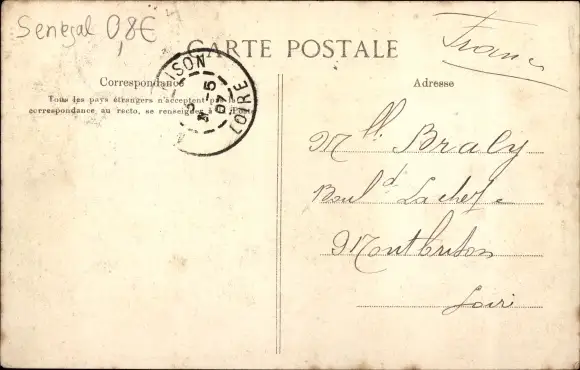 Senegal 0,8€
CARTE POSTALE
France
Correspondance
Tous les pays étrangers n'acceptent pas la
correspondance au recto, se renseigner à la Poste
Adresse
ISON
LOIRE
5
07
Mlle Braly
Boul d Lachèze
Montbrison
Loire